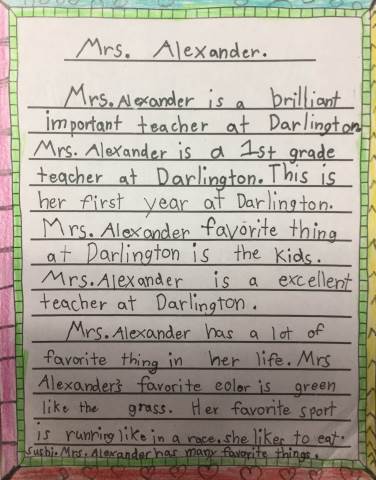 Mrs. Alexander.
Mrs. Alexander is a brilliant
important teacher at Darlington
Mrs. Alexander is a 1st grade
teacher at Darlington. This is
her first year at Darlington.
Mrs. Alexander favorite thing
at Darlington is the kids.
Mrs. Alexander is a excellent
teacher at Darlington.
Mrs. Alexander has a lot of
favorite thing in her life. Mrs
Alexander's favorite color is green
like the grass. Her favorite sport
is running like in a race. she likes to eat.
sushi. Mrs. Alexander has many favorite things.